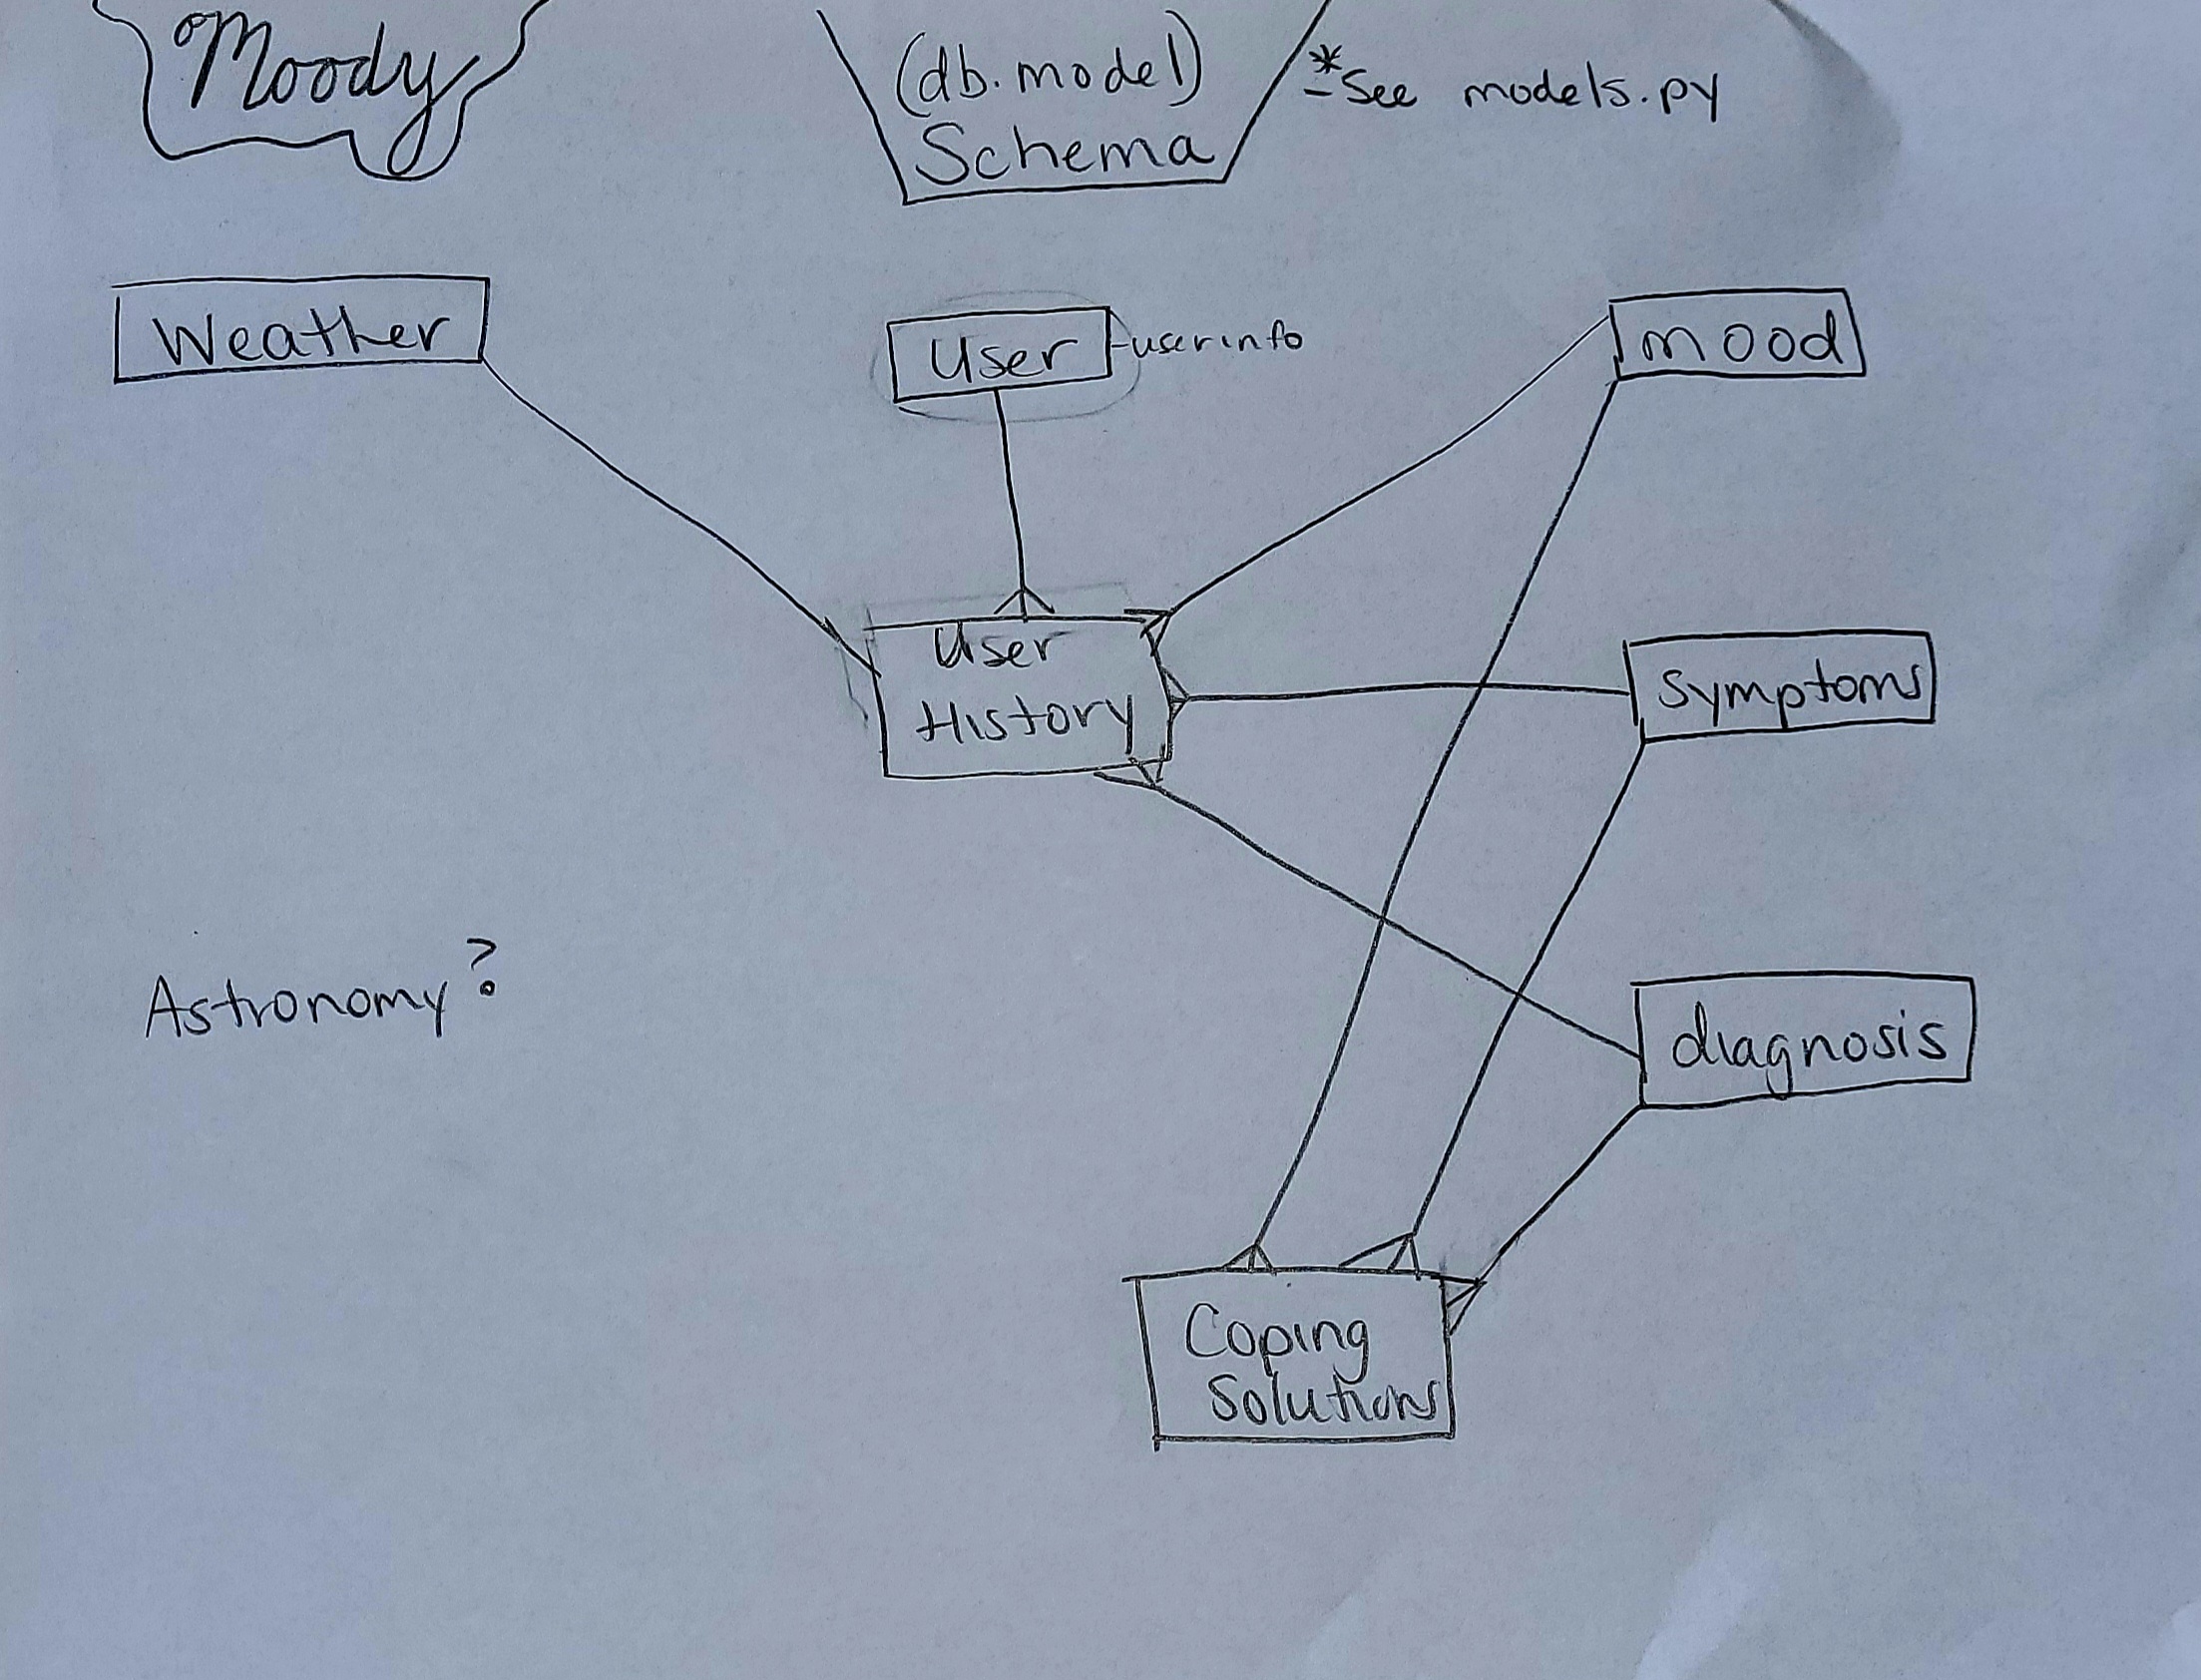 Moody
(db.model)
Schema
*See models.py
Weather
User
-userinfo
mood
User
History
Symptoms
Astronomy?
diagnosis
Coping
Solutions